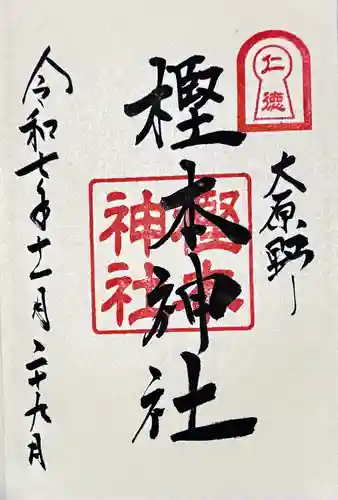 仁徳
大原野
樫本神社
樫本神社
令和七年十一月二十九月